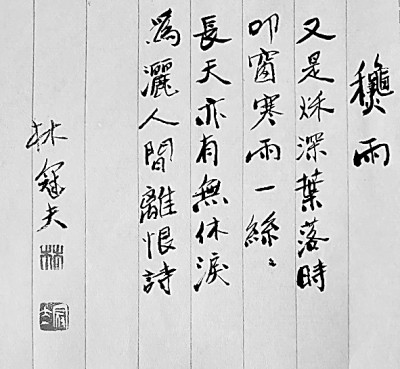 龝雨
又是秌深葉落時
叩窗寒雨一絲〻
長天亦有無休淚
爲灑人間離恨詩
林冠夫
林